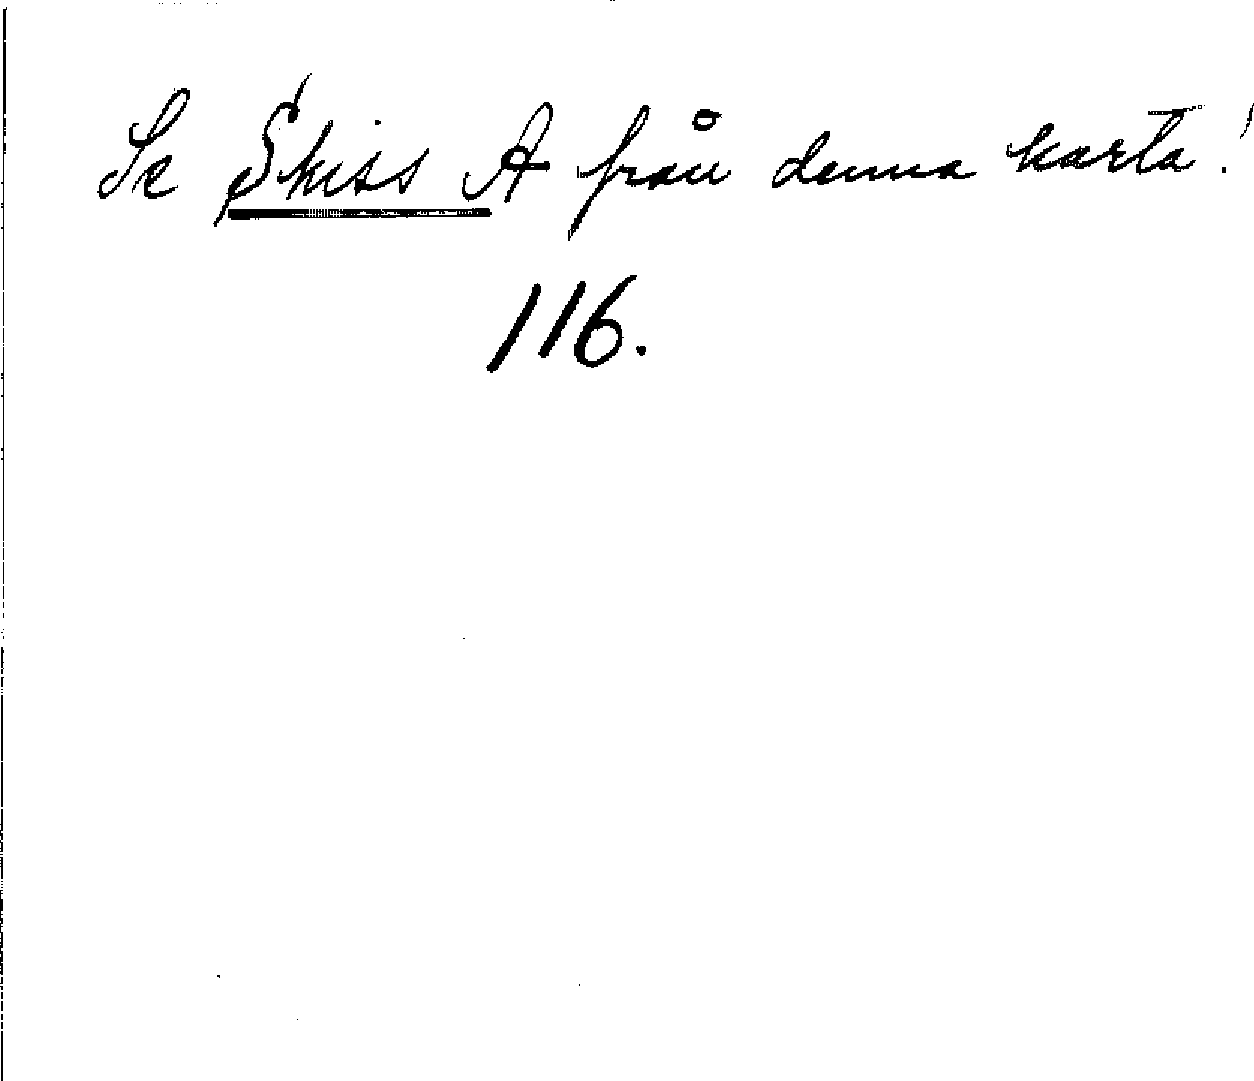 Se Skiss A från denna karta!
116.